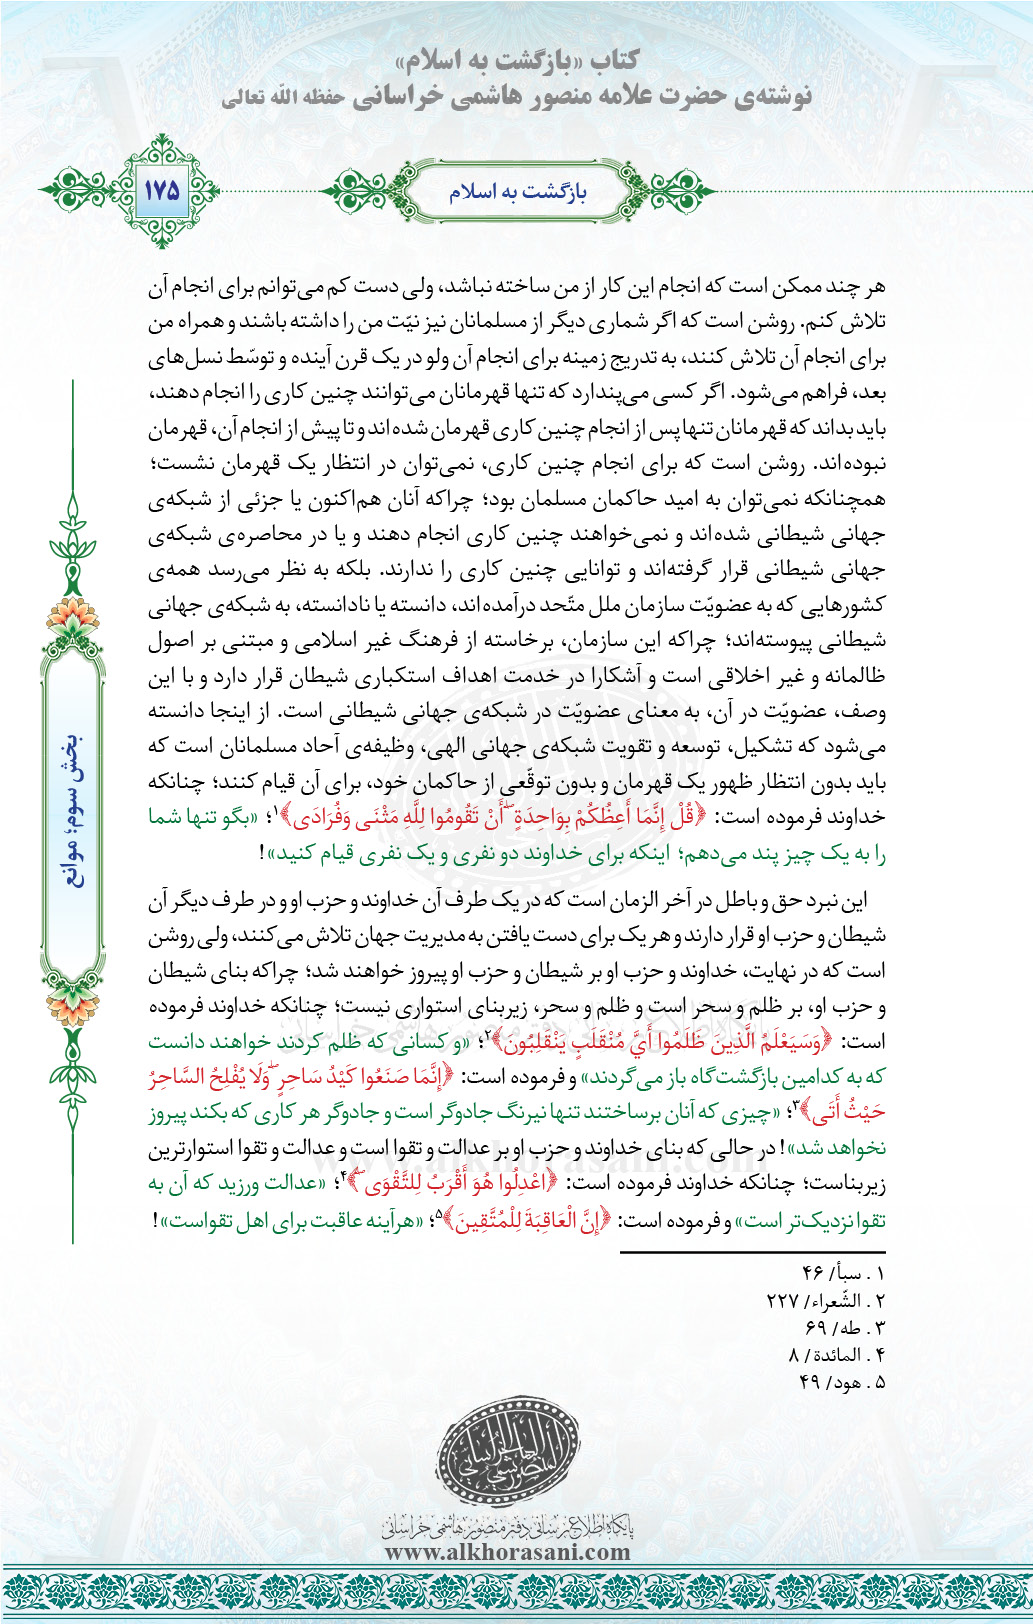 کتاب «بازگشت به اسلام»
نوشته‌ی حضرت علامه منصور هاشمی خراسانی حفظه الله تعالی
بازگشت به اسلام
۱۷۵
هر چند ممکن است که انجام این کار از من ساخته نباشد، ولی دست کم می‌توانم برای انجام آن
تلاش کنم. روشن است که اگر شماری دیگر از مسلمانان نیز نیّت من را داشته باشند و همراه من
برای انجام آن تلاش کنند، به تدریج زمینه برای انجام آن ولو در یک قرن آینده و توسّط نسل‌های
بعد، فراهم می‌شود. اگر کسی می‌پندارد که تنها قهرمانان می‌توانند چنین کاری را انجام دهند،
باید بداند که قهرمانان تنها پس از انجام چنین کاری قهرمان شده‌اند و تا پیش از انجام آن، قهرمان
نبوده‌اند. روشن است که برای انجام چنین کاری، نمی‌توان در انتظار یک قهرمان نشست؛
همچنانکه نمی‌توان به امید حاکمان مسلمان بود؛ چراکه آنان هم‌اکنون یا جزئی از شبکه‌ی
جهانی شیطانی شده‌اند و نمی‌خواهند چنین کاری انجام دهند و یا در محاصره‌ی شبکه‌ی
جهانی شیطانی قرار گرفته‌اند و توانایی چنین کاری را ندارند. بلکه به نظر می‌رسد همه‌ی
کشورهایی که به عضویّت سازمان ملل متّحد درآمده‌اند، دانسته یا نادانسته، به شبکه‌ی جهانی
شیطانی پیوسته‌اند؛ چراکه این سازمان، برخاسته از فرهنگ غیر اسلامی و مبتنی بر اصول
ظالمانه و غیر اخلاقی است و آشکارا در خدمت اهداف استکباری شیطان قرار دارد و با این
وصف، عضویّت در آن، به معنای عضویّت در شبکه‌ی جهانی شیطانی است. از اینجا دانسته
می‌شود که تشکیل، توسعه و تقویت شبکه‌ی جهانی الهی، وظیفه‌ی آحاد مسلمانان است که
باید بدون انتظار ظهور یک قهرمان و بدون توقّعی از حاکمان خود، برای آن قیام کنند؛ چنانکه
خداوند فرموده است: ﴿قُلْ إِنَّمَا أَعِظُكُمْ بِوَاحِدَةٍ ۖ أَنْ تَقُومُوا لِلَّهِ مَثْنَى وَفُرَادَى﴾۱؛ «بگو تنها شما
را به یک چیز پند می‌دهم؛ اینکه برای خداوند دو نفری و یک نفری قیام کنید»!
این نبرد حق و باطل در آخر الزمان است که در یک طرف آن خداوند و حزب او و در طرف دیگر آن
شیطان و حزب او قرار دارند و هر یک برای دست یافتن به مدیریت جهان تلاش می‌کنند، ولی روشن
است که در نهایت، خداوند و حزب او بر شیطان و حزب او پیروز خواهند شد؛ چراکه بنای شیطان
و حزب او، بر ظلم و سحر است و ظلم و سحر، زیربنای استواری نیست؛ چنانکه خداوند فرموده
است: ﴿وَسَيَعْلَمُ الَّذِينَ ظَلَمُوا أَيَّ مُنْقَلَبٍ يَنْقَلِبُونَ﴾۲؛ «و کسانی که ظلم کردند خواهند دانست
که به کدامین بازگشت‌گاه باز می‌گردند» و فرموده است: ﴿إِنَّمَا صَنَعُوا كَيْدُ سَاحِرٍ ۖ وَلَا يُفْلِحُ السَّاحِرُ
حَيْثُ أَتَى﴾۳؛ «چیزی که آنان برساختند تنها نیرنگ جادوگر است و جادوگر هر کاری که بکند پیروز
نخواهد شد»! در حالی که بنای خداوند و حزب او بر عدالت و تقوا است و عدالت و تقوا استوارترین
زیربناست؛ چنانکه خداوند فرموده است: ﴿اعْدِلُوا هُوَ أَقْرَبُ لِلتَّقْوَى ۖ﴾۴؛ «عدالت ورزید که آن به
تقوا نزدیک‌تر است» و فرموده است: ﴿إِنَّ الْعَاقِبَةَ لِلْمُتَّقِينَ﴾۵؛ «هرآینه عاقبت برای اهل تقواست»!
۱ . سبأ/ ۴۶
۲ . الشّعراء/ ۲۲۷
۳ . طه/ ۶۹
۴ . المائدة/ ۸
۵ . هود/ ۴۹
بخش سوم؛ موانع
پایگاه اطلاع‌رسانی دفتر منصور هاشمی خراسانی
www.alkhorasani.com